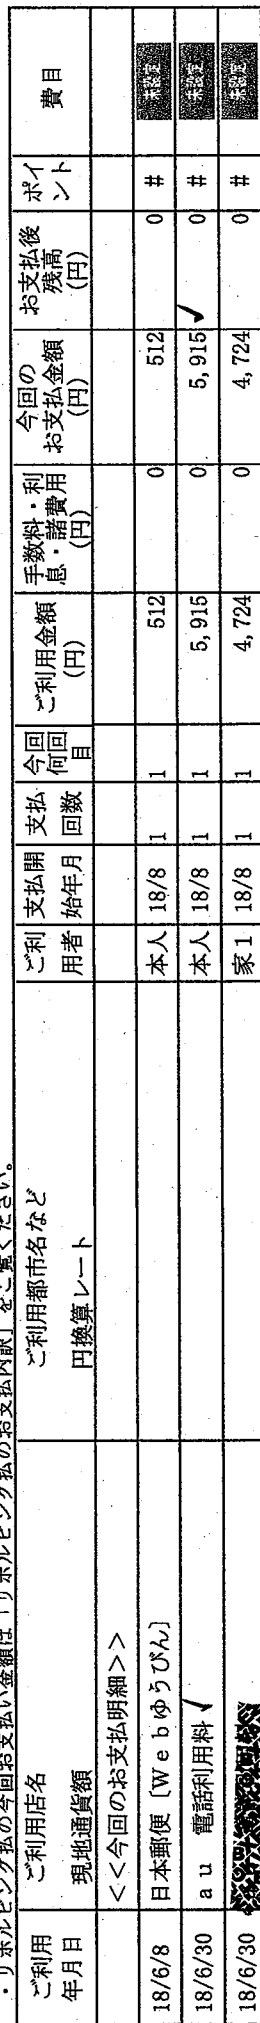 ・リボルビング払の今回お支払い金額は「リボルビング払のお支払内訳」をご覧ください。
ご利用年月日 ご利用店名 現地通貨額 ご利用都市名など 円換算レート ご利用者 支払開始年月 支払回数 今回何回目 ご利用金額(円) 手数料・利息・諸費用(円) 今回のお支払金額(円) お支払後残高(円) ポイント 費目
<<今回のお支払明細>>
18/6/8 日本郵便〔Webゆうびん〕 本人 18/8 1 1 512 0 512 0 #
18/6/30 au 電話利用料 本人 18/8 1 1 5,915 0 5,915 0 #
18/6/30 家1 18/8 1 1 4,724 0 4,724 0 #